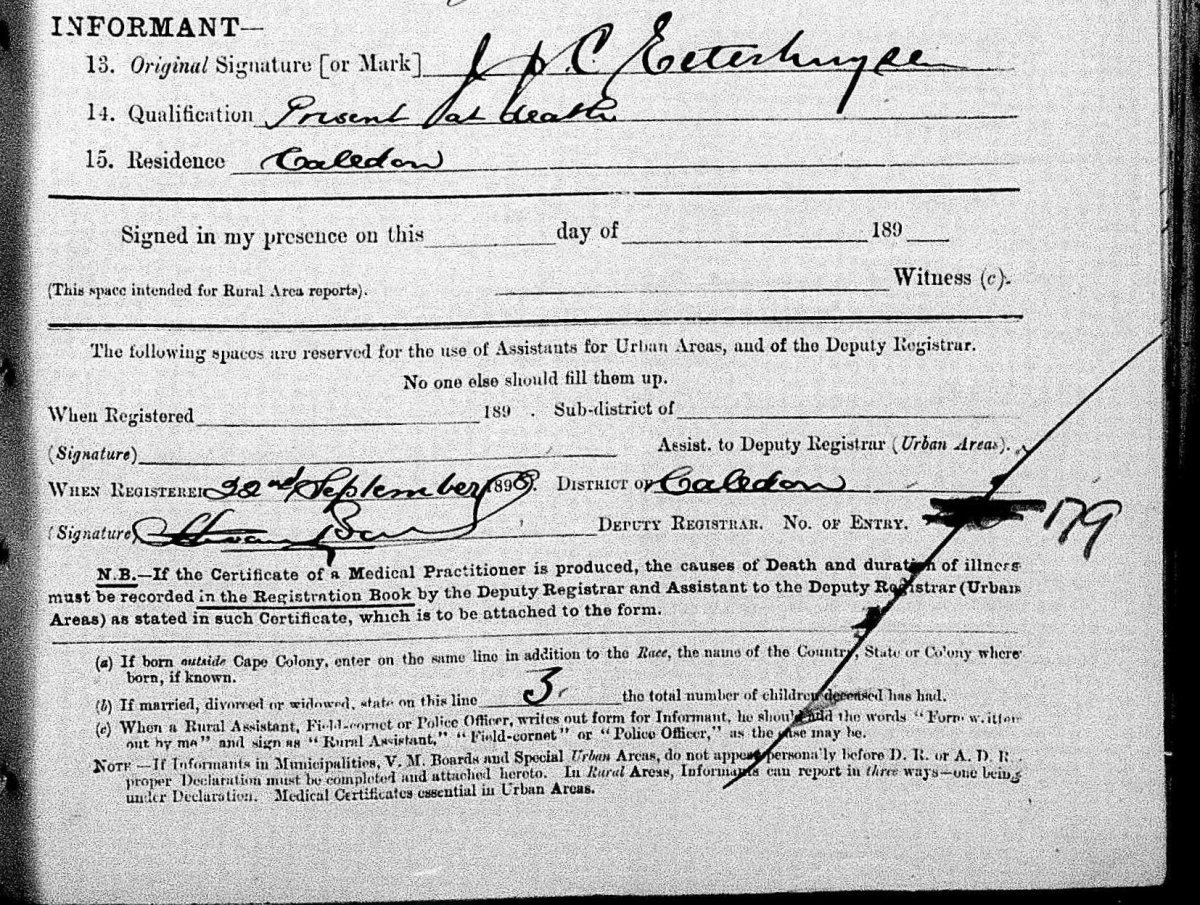 INFORMANT—
13. Original Signature [or Mark] J P C Esterhuysen
14. Qualification Present at death
15. Residence Caledon
Signed in my presence on this day of 189
Witness (c).
(This space intended for Rural Area reports).
The following spaces are reserved for the use of Assistants for Urban Areas, and of the Deputy Registrar.
No one else should fill them up.
When Registered 189 . Sub-district of
(Signature) Assist. to Deputy Registrar (Urban Areas).
WHEN REGISTERED 22nd September 1898. DISTRICT OF Caledon
(Signature) DEPUTY REGISTRAR. NO. OF ENTRY. 179
N.B.—If the Certificate of a Medical Practitioner is produced, the causes of Death and duration of illness
must be recorded in the Registration Book by the Deputy Registrar and Assistant to the Deputy Registrar (Urban
Areas) as stated in such Certificate, which is to be attached to the form.
(a) If born outside Cape Colony, enter on the same line in addition to the Race, the name of the Country, State or Colony where
born, if known.
(b) If married, divorced or widowed, state on this line 3. the total number of children deceased has had.
(c) When a Rural Assistant, Field-cornet or Police Officer, writes out form for Informant, he should add the words "Form written
out by me" and sign as "Rural Assistant," "Field-cornet" or "Police Officer," as the case may be.
NOTE—If Informants in Municipalities, V. M. Boards and Special Urban Areas, do not appear personally before D. R. or A. D. R.
proper Declaration must be completed and attached hereto. In Rural Areas, Informants can report in three ways—one being
under Declaration. Medical Certificates essential in Urban Areas.